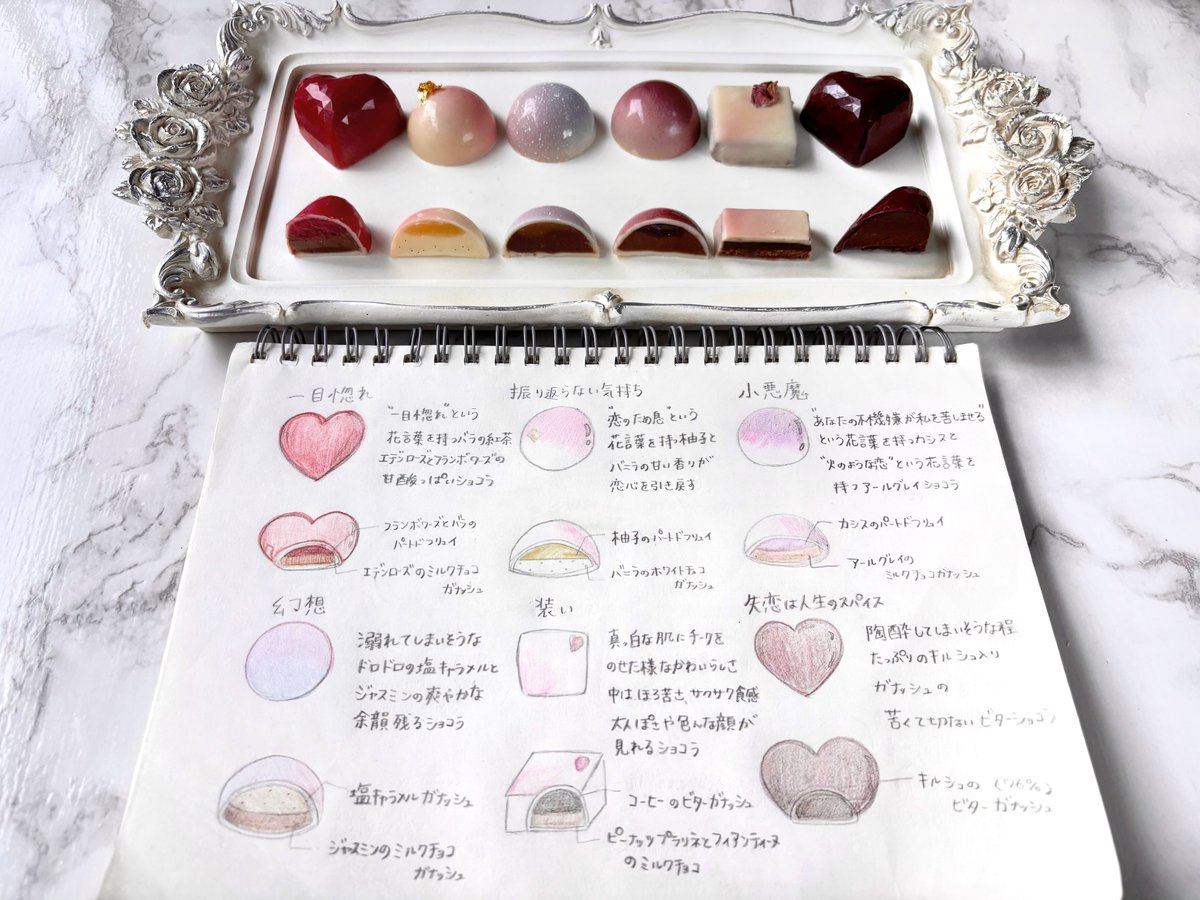 一目惚れ
"一目惚れ"という
花言葉を持つバラの紅茶
エデンローズとフランボワーズの
甘酸っぱいショコラ
フランボワーズとバラの
パートドフリュイ
エデンローズのミルクチョコ
ガナッシュ
振り返らない気持ち
"恋のため息"という
花言葉を持つ柚子と
バニラの甘い香りが
恋心を引き戻す
柚子のパートドフリュイ
バニラのホワイトチョコ
ガナッシュ
小悪魔
"あなたの不機嫌が私を苦しませる"
という花言葉を持つカシスと
"火のような恋"という花言葉を
持つアールグレイショコラ
カシスのパートドフリュイ
アールグレイの
ミルクチョコガナッシュ
幻想
溺れてしまいそうな
ドロドロの塩キャラメルと
ジャスミンの爽やかな
余韻残るショコラ
塩キャラメルガナッシュ
ジャスミンのミルクチョコ
ガナッシュ
装い
真っ白な肌にチークを
のせた様なかわいらしさ
中はほろ苦さ、サクサク食感
大人ぽさや色んな顔が
見れるショコラ
コーヒーのビターガナッシュ
ピーナッツプラリネとフィアンティーヌ
のミルクチョコ
失恋は人生のスパイス
陶酔してしまいそうな程
たっぷりのキルシュ入り
ガナッシュの
苦くて切ないビターショコラ
キルシュの(76%)
ビターガナッシュ